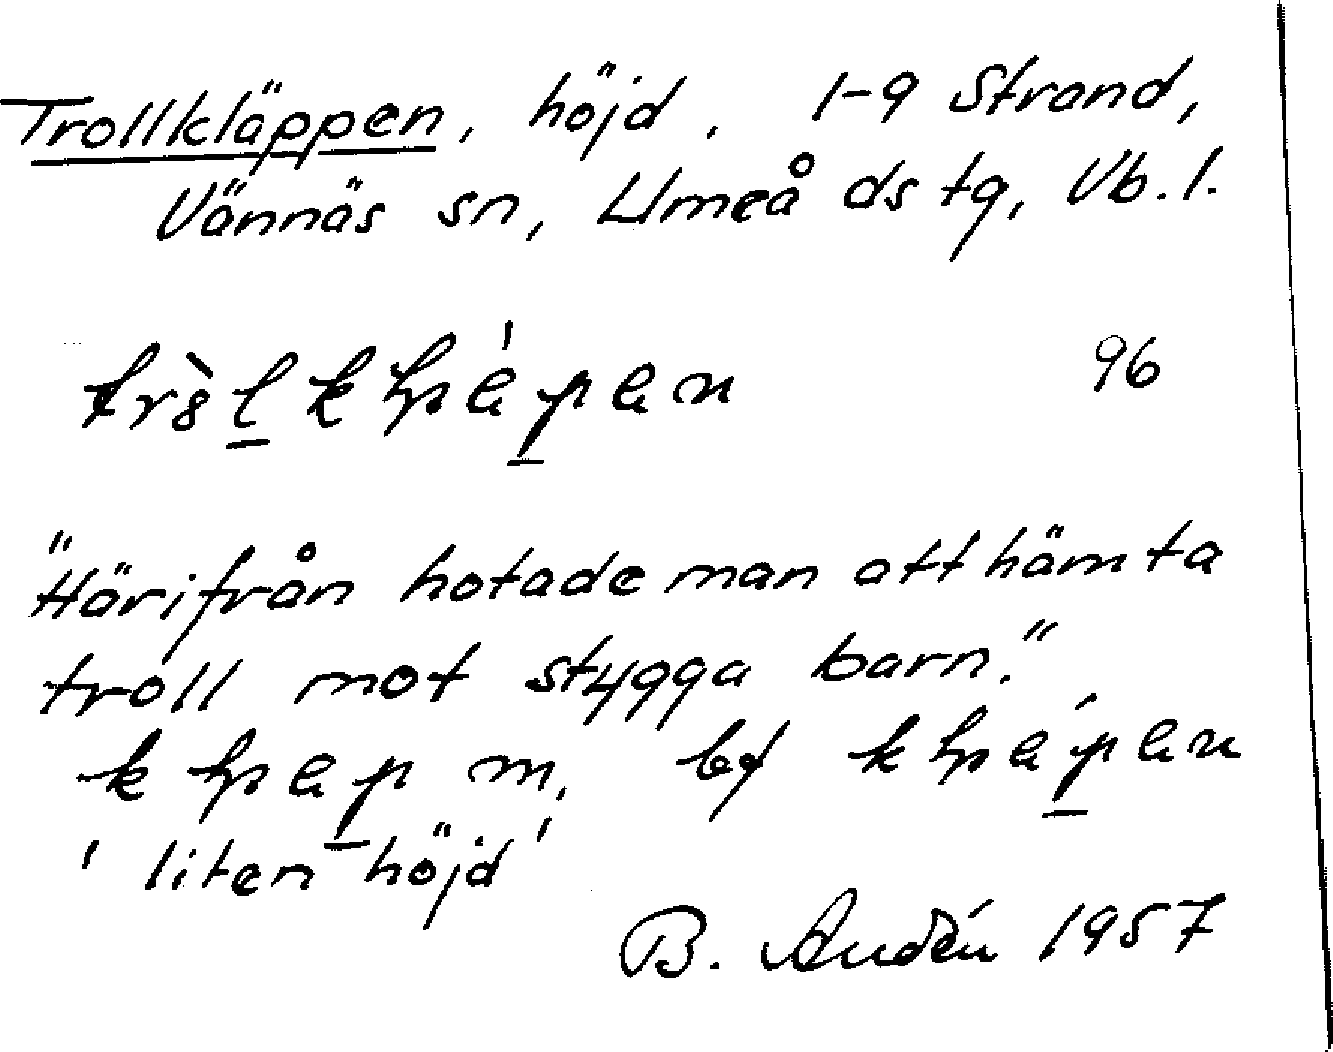 Trollkläppen, höjd. 1-9 Strand,
Vännäs sn, Umeå ds tg, Vb. l.
96
"Härifrån hotade man att hämta
troll mot stygga barn."
m, bf
'liten höjd'
B. Audén 1957